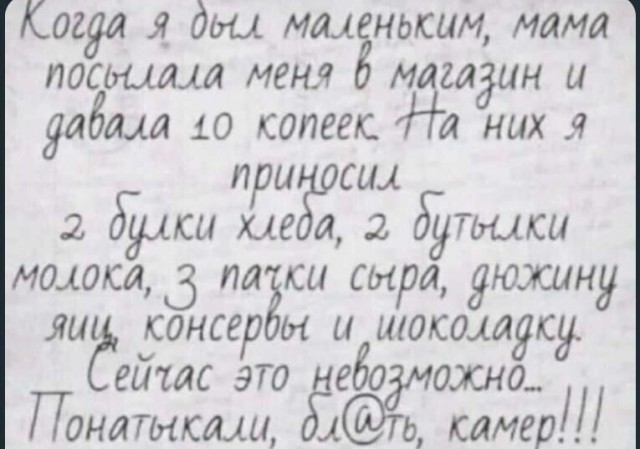 Когда я был маленьким, мама
посылала меня в магазин и
давала 10 копеек. На них я
приносил
2 булки хлеба, 2 бутылки
молока, 3 пачки сыра, дюжину
яиц, консервы и шоколадку.
Сейчас это невозможно...
Понатыкали, бл@ть, камер!!!